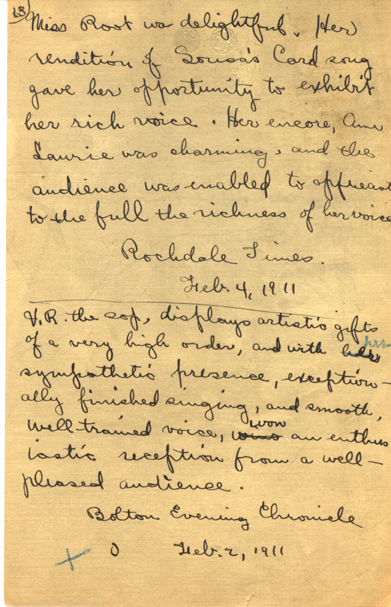 68)
Miss Root was delightful. Her
rendition of Sousa's Card song
gave her opportunity to exhibit
her rich voice. Her encore, Annie
Laurie was charming, and the
audience was enabled to appreciate
to the full the richness of her voice
Rochdale Times.
Feb. 4, 1911
V.R. the sop, displays artistic gifts
of a very high order, and with her
sympathetic presence, exception-
ally finished singing, and smooth,
well trained voice, won an enthus
iastic reception from a well-
pleased audience.
Bolton Evening Chronicle
Feb. 2, 1911